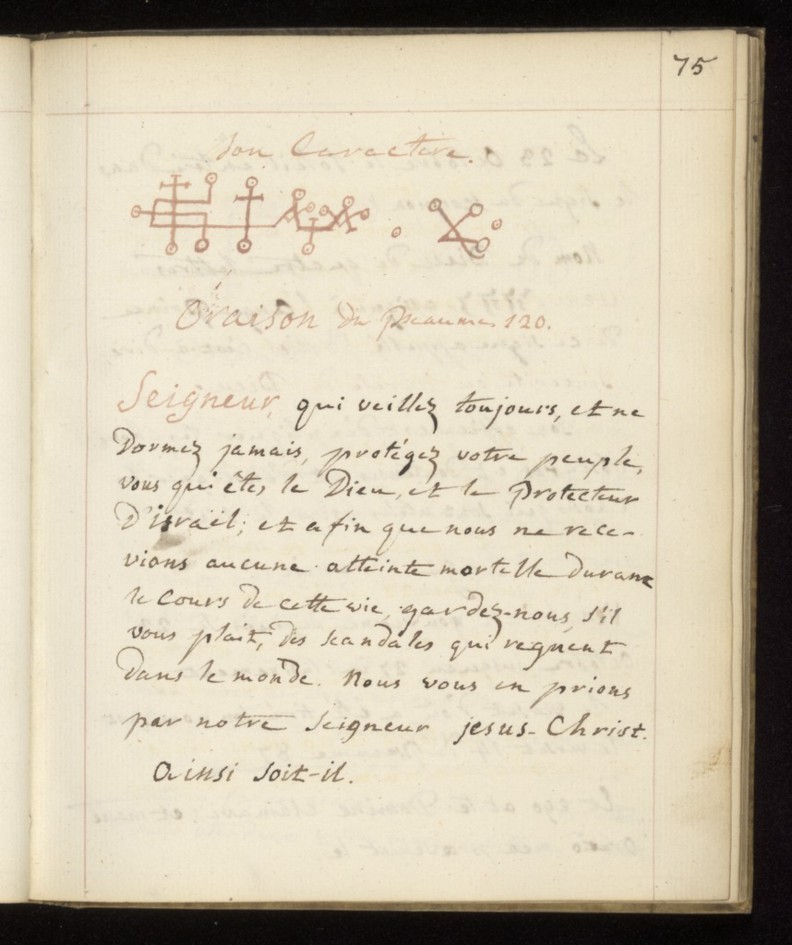 75
Son Caractere.
Oraison du Pseaume 120.
Seigneur, qui veillez toujours, et ne
Dormez jamais, protégez votre peuple,
vous qui êtes le Dieu, et le Protecteur
D'israël; et afin que nous ne rece-
vions aucune atteinte mortelle durant
le cours de cette vie, gardez-nous, s'il
vous plait, des scandales qui regnent
dans le monde. Nous vous en prions
par notre Seigneur jesus-Christ.
Ainsi soit-il.